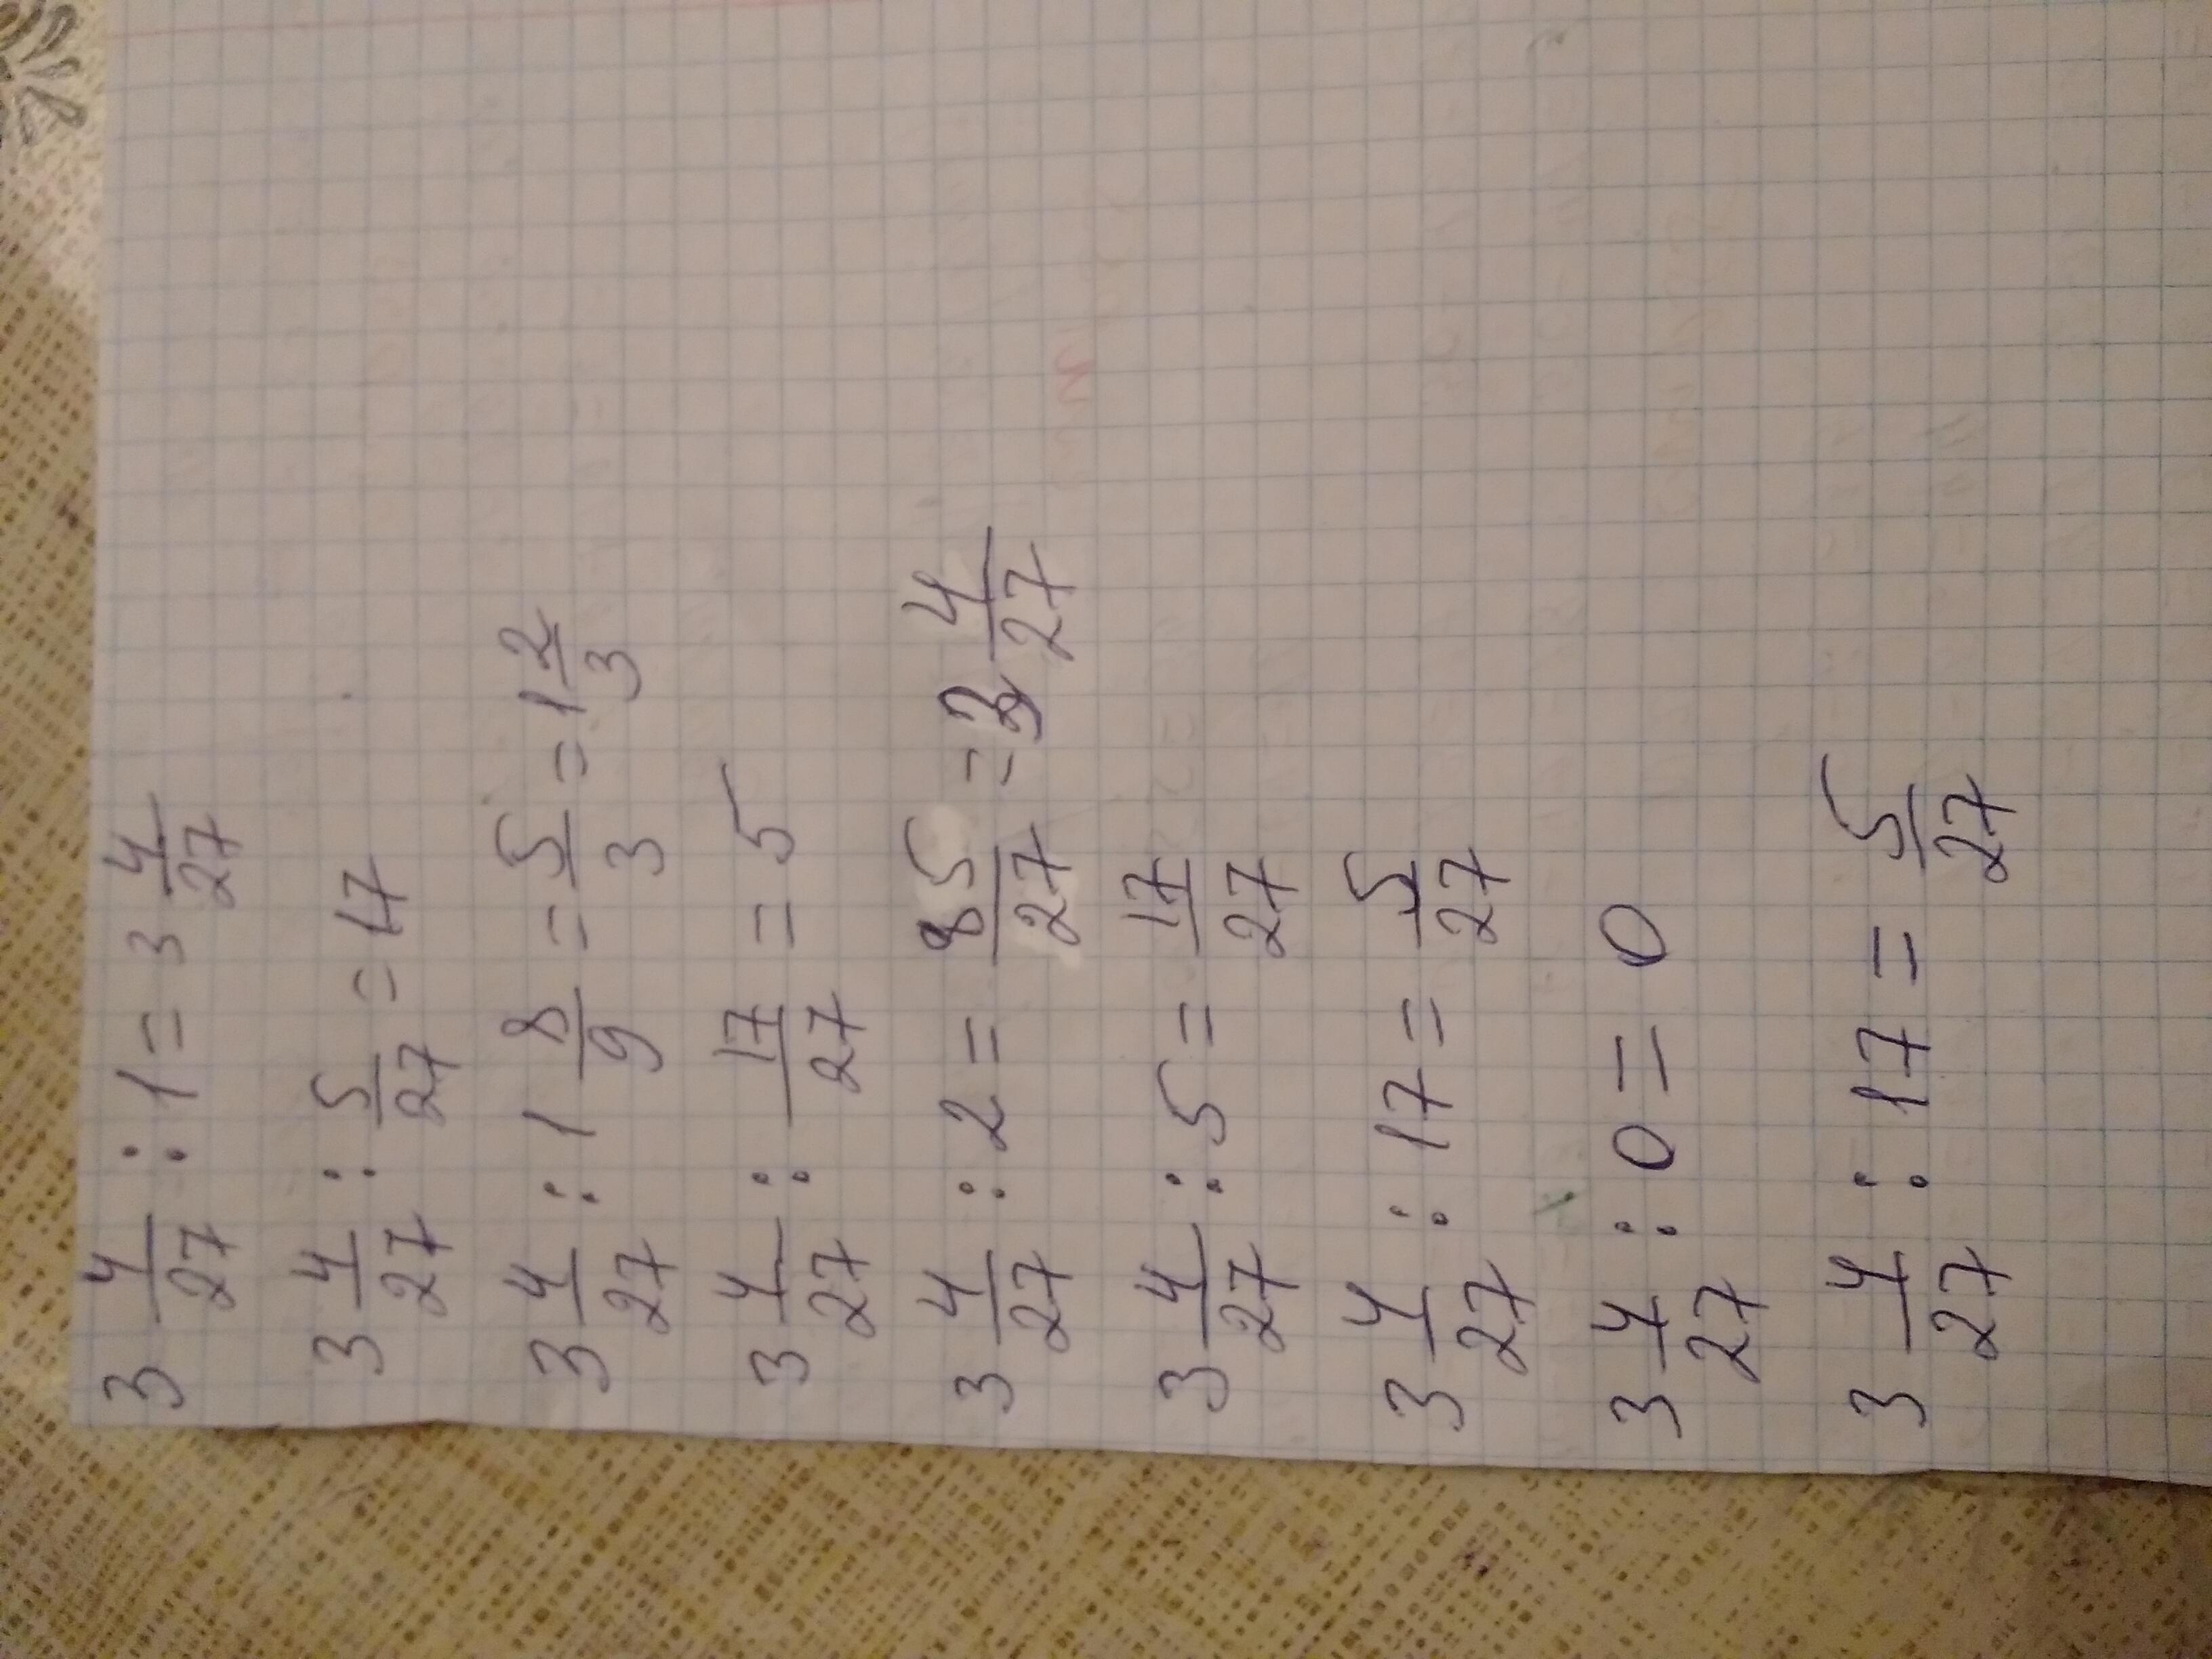 3 4/27 : 1 = 3 4/27
3 4/27 : 5/27 = 17
3 4/27 : 1 8/9 = 5/3 = 1 2/3
3 4/27 : 17/27 = 5
3 4/27 : 2 = 85/27 = 3 4/27
3 4/27 : 5 = 17/27
3 4/27 : 17 = 5/27
3 4/27 : 0 = 0
3 4/27 : 17 = 5/27